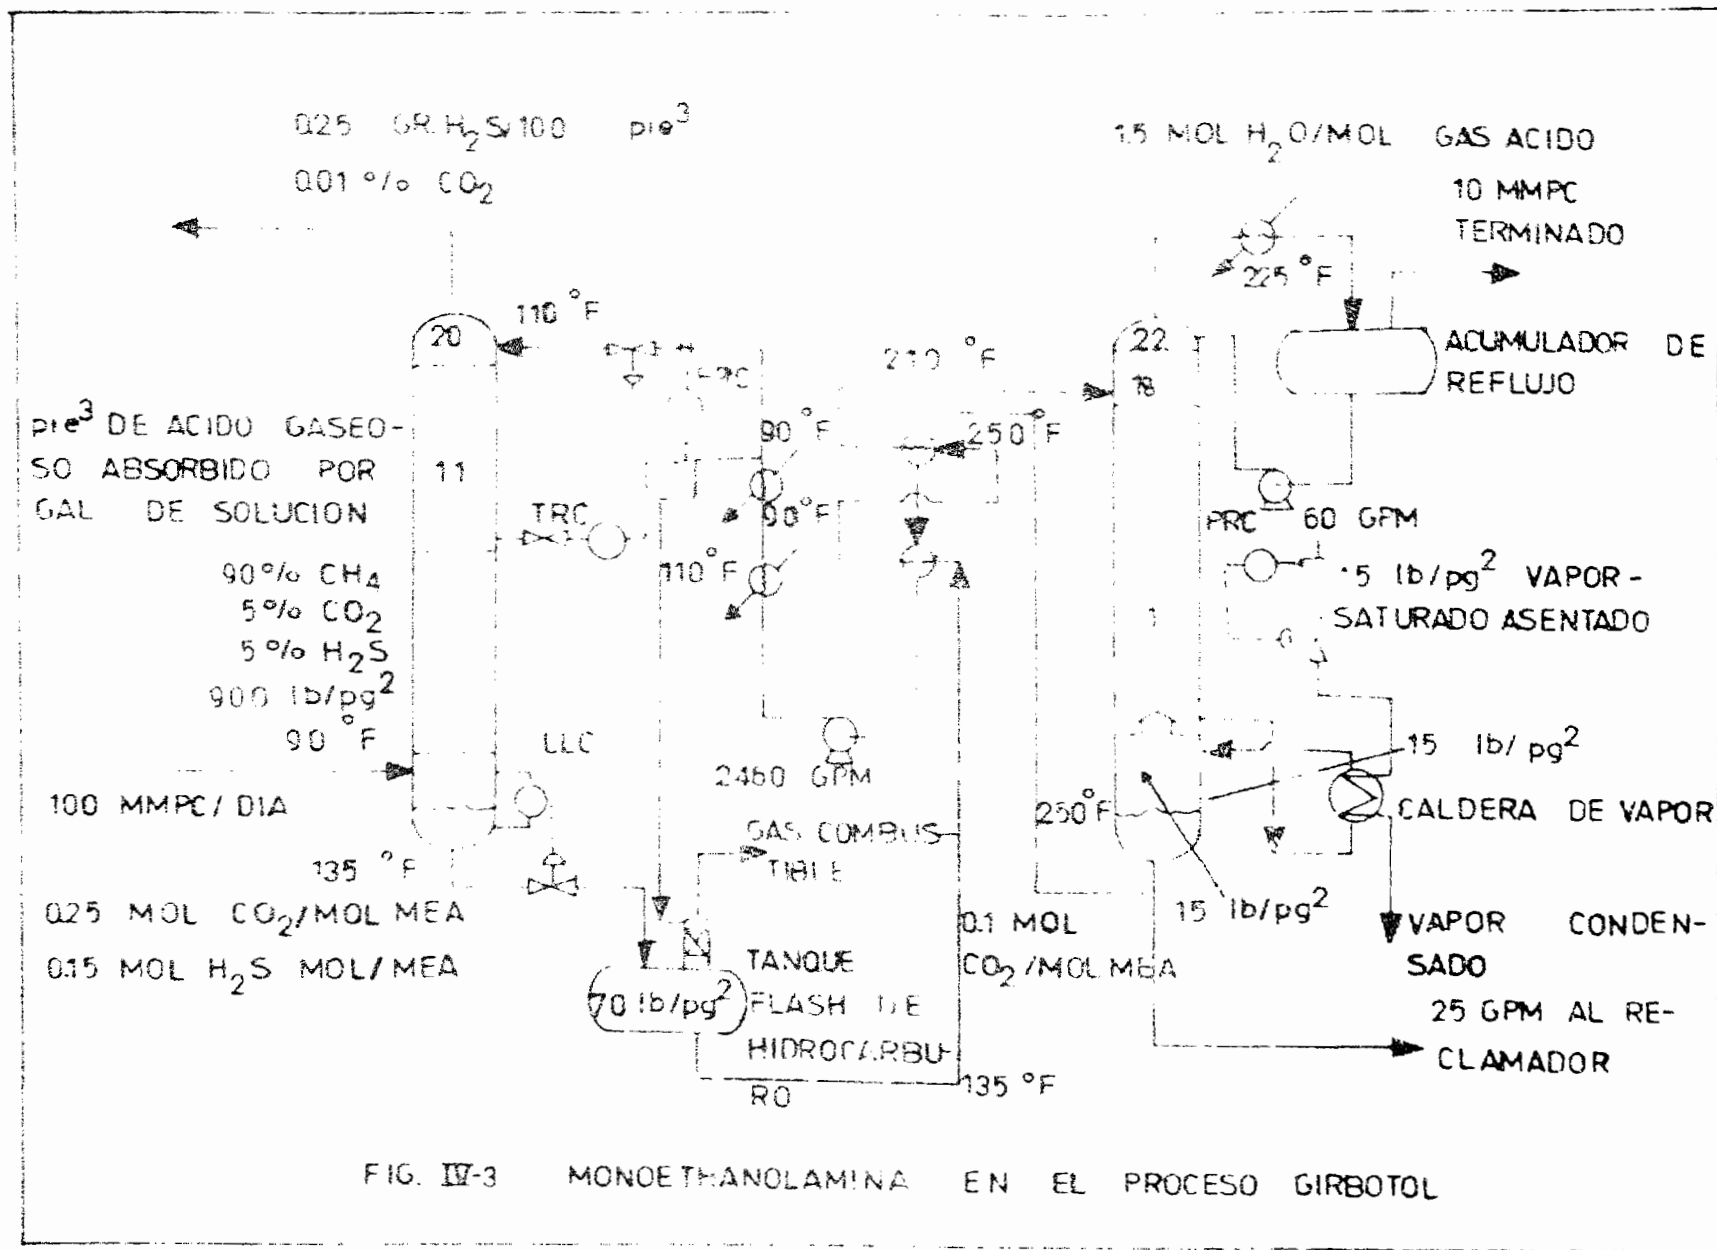 0.25 GR. H2S/100 pie3
0.01 % CO2
1.5 MOL H2O/MOL GAS ACIDO
10 MMPC
TERMINADO
225 °F
110 °F
20
22
18
210 °F
ACUMULADOR DE
REFLUJO
pie3 DE ACIDO GASEO-
SO ABSORBIDO POR
GAL DE SOLUCION
11
90 °F
250 °F
90 °F
TRC
110 °F
PRC 60 GPM
15 lb/pg2 VAPOR-
SATURADO ASENTADO
1
90% CH4
5% CO2
5% H2S
900 lb/pg2
90 °F
LLC
100 MMPC/DIA
2460 GPM
15 lb/pg2
250°F
CALDERA DE VAPOR
GAS COMBUS-
TIBLE
135 °F
0.25 MOL CO2/MOL MEA
0.15 MOL H2S MOL/MEA
15 lb/pg2
0.1 MOL
CO2/MOL MEA
VAPOR CONDEN-
SADO
25 GPM AL RE-
CLAMADOR
70 lb/pg2
TANQUE
FLASH DE
HIDROCARBU-
RO
135 °F
FIG. IV-3 MONOETHANOLAMINA EN EL PROCESO GIRBOTOL